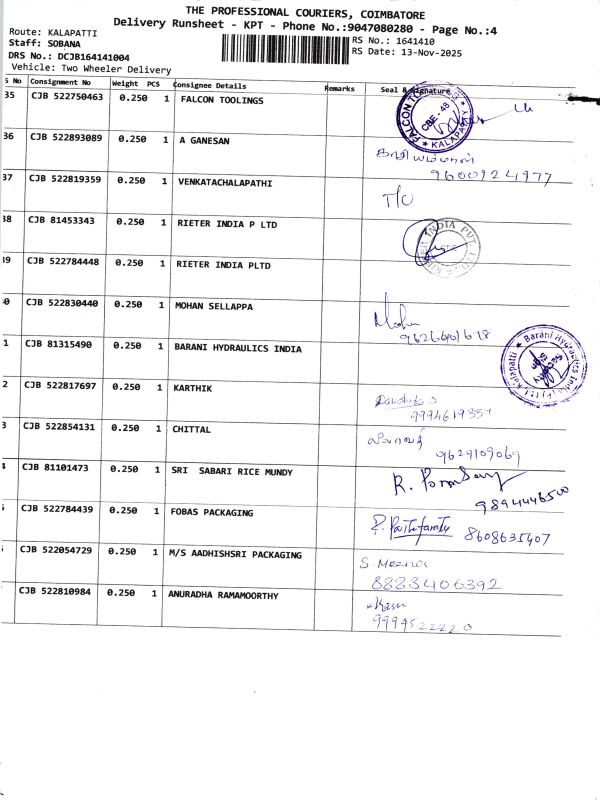 THE PROFESSIONAL COURIERS, COIMBATORE
Delivery Runsheet - KPT - Phone No.:9047080280 - Page No.:4
Route: KALAPATTI
Staff: SOBANA
DRS No.: DCJB164141004
Vehicle: Two Wheeler Delivery
RS No.: 1641410
RS Date: 13-Nov-2025
S No Consignment No Weight PCS Consignee Details Remarks Seal & Signature
35 CJB 522750463 0.250 1 FALCON TOOLINGS
CBE-48 KALAPATTI
36 CJB 522893089 0.250 1 A GANESAN
9600924977
37 CJB 522819359 0.250 1 VENKATACHALAPATHI T/O
38 CJB 81453343 0.250 1 RIETER INDIA P LTD
INDIA PVT
39 CJB 522784448 0.250 1 RIETER INDIA PLTD
0 CJB 522830440 0.250 1 MOHAN SELLAPPA
1 CJB 81315490 0.250 1 BARANI HYDRAULICS INDIA
Barani Hydraulics India (P) Ltd Kalapatti
Security Sign
2 CJB 522817697 0.250 1 KARTHIK
9994619357
3 CJB 522854131 0.250 1 CHITTAL
9629109069
4 CJB 81101473 0.250 1 SRI SABARI RICE MUNDY
9894446500
5 CJB 522784439 0.250 1 FOBAS PACKAGING
8608635407
CJB 522054729 0.250 1 M/S AADHISHSRI PACKAGING
S. Meena
8883406392
CJB 522810984 0.250 1 ANURADHA RAMAMOORTHY
9994522220